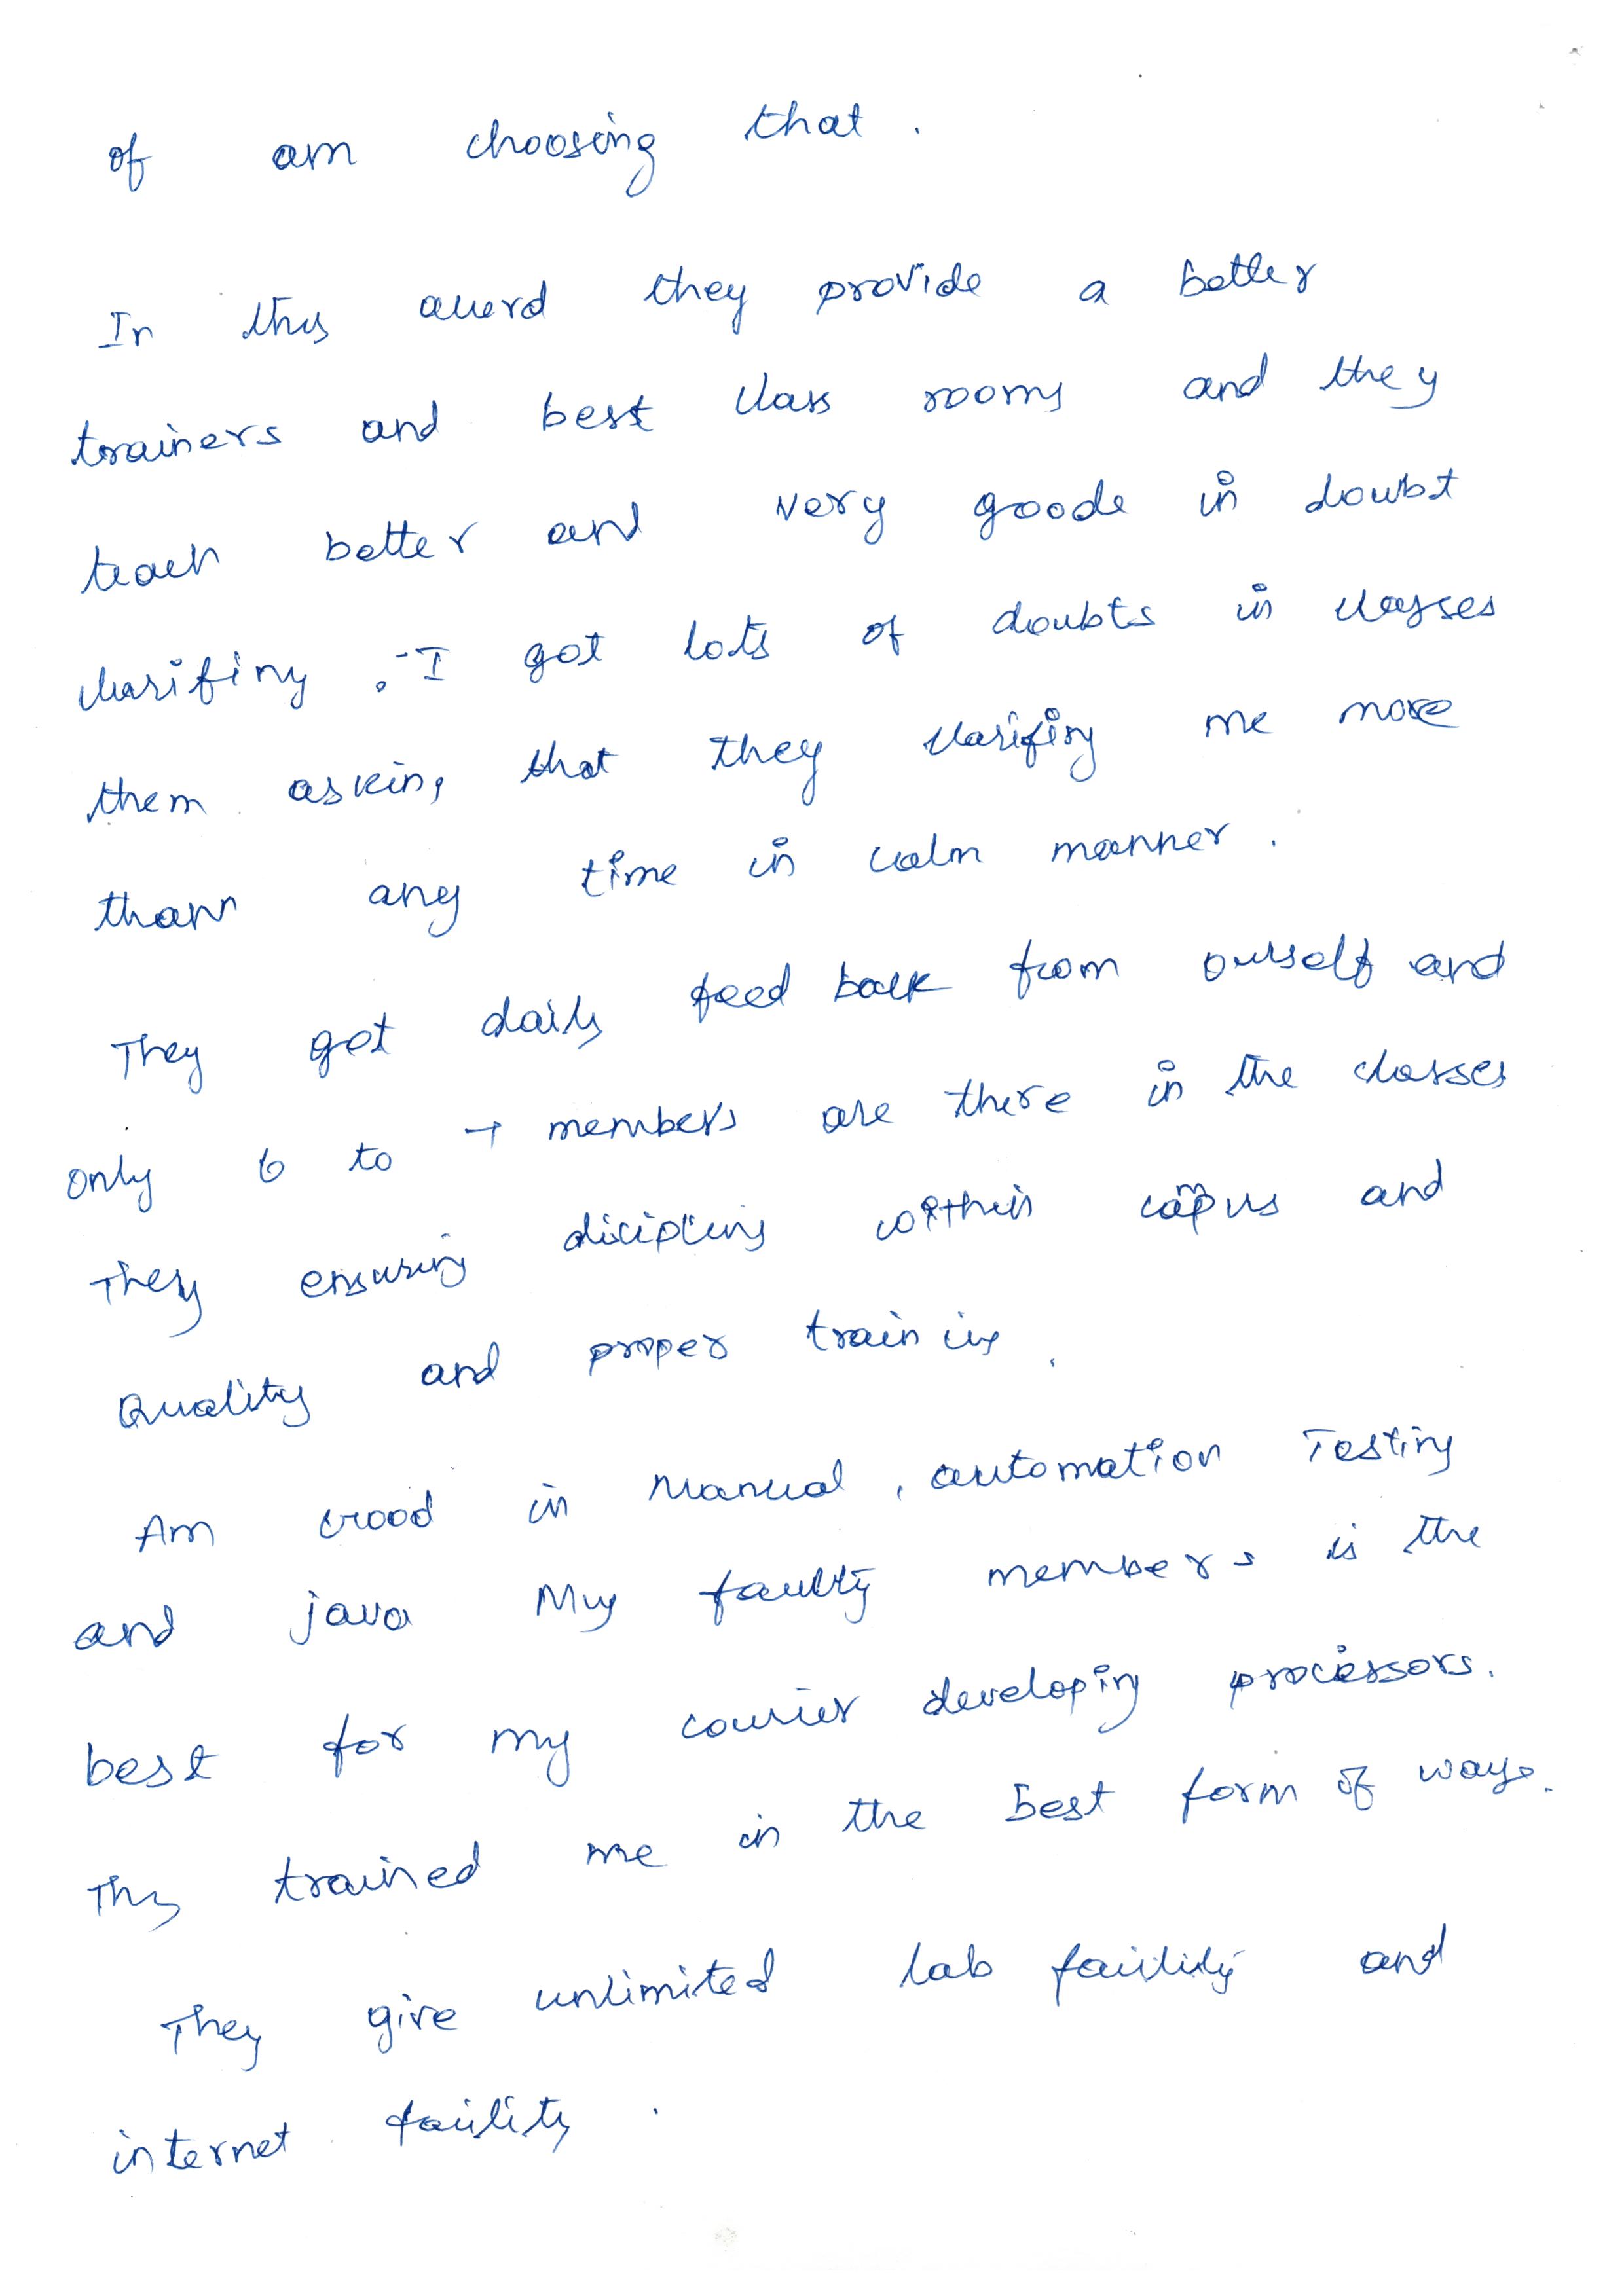 of am choosing that .
In this they provide a better
trainers and best class rooms and they
teach better and very goode in doubt
clarifiny . I got lots of doubts in classes
them asking that they clarifiny me more
than any time in calm manner .
They get daily feed back from ourself and
only 6 to 7 members are there in the classes
They ensuring within campus and
Quality and proper training .
Am Good in Manual , automation Testing
and java My faculty members is the
best for my courier developing processors.
They trained me in the best form of ways.
They give unlimited lab facility and
internet facility .